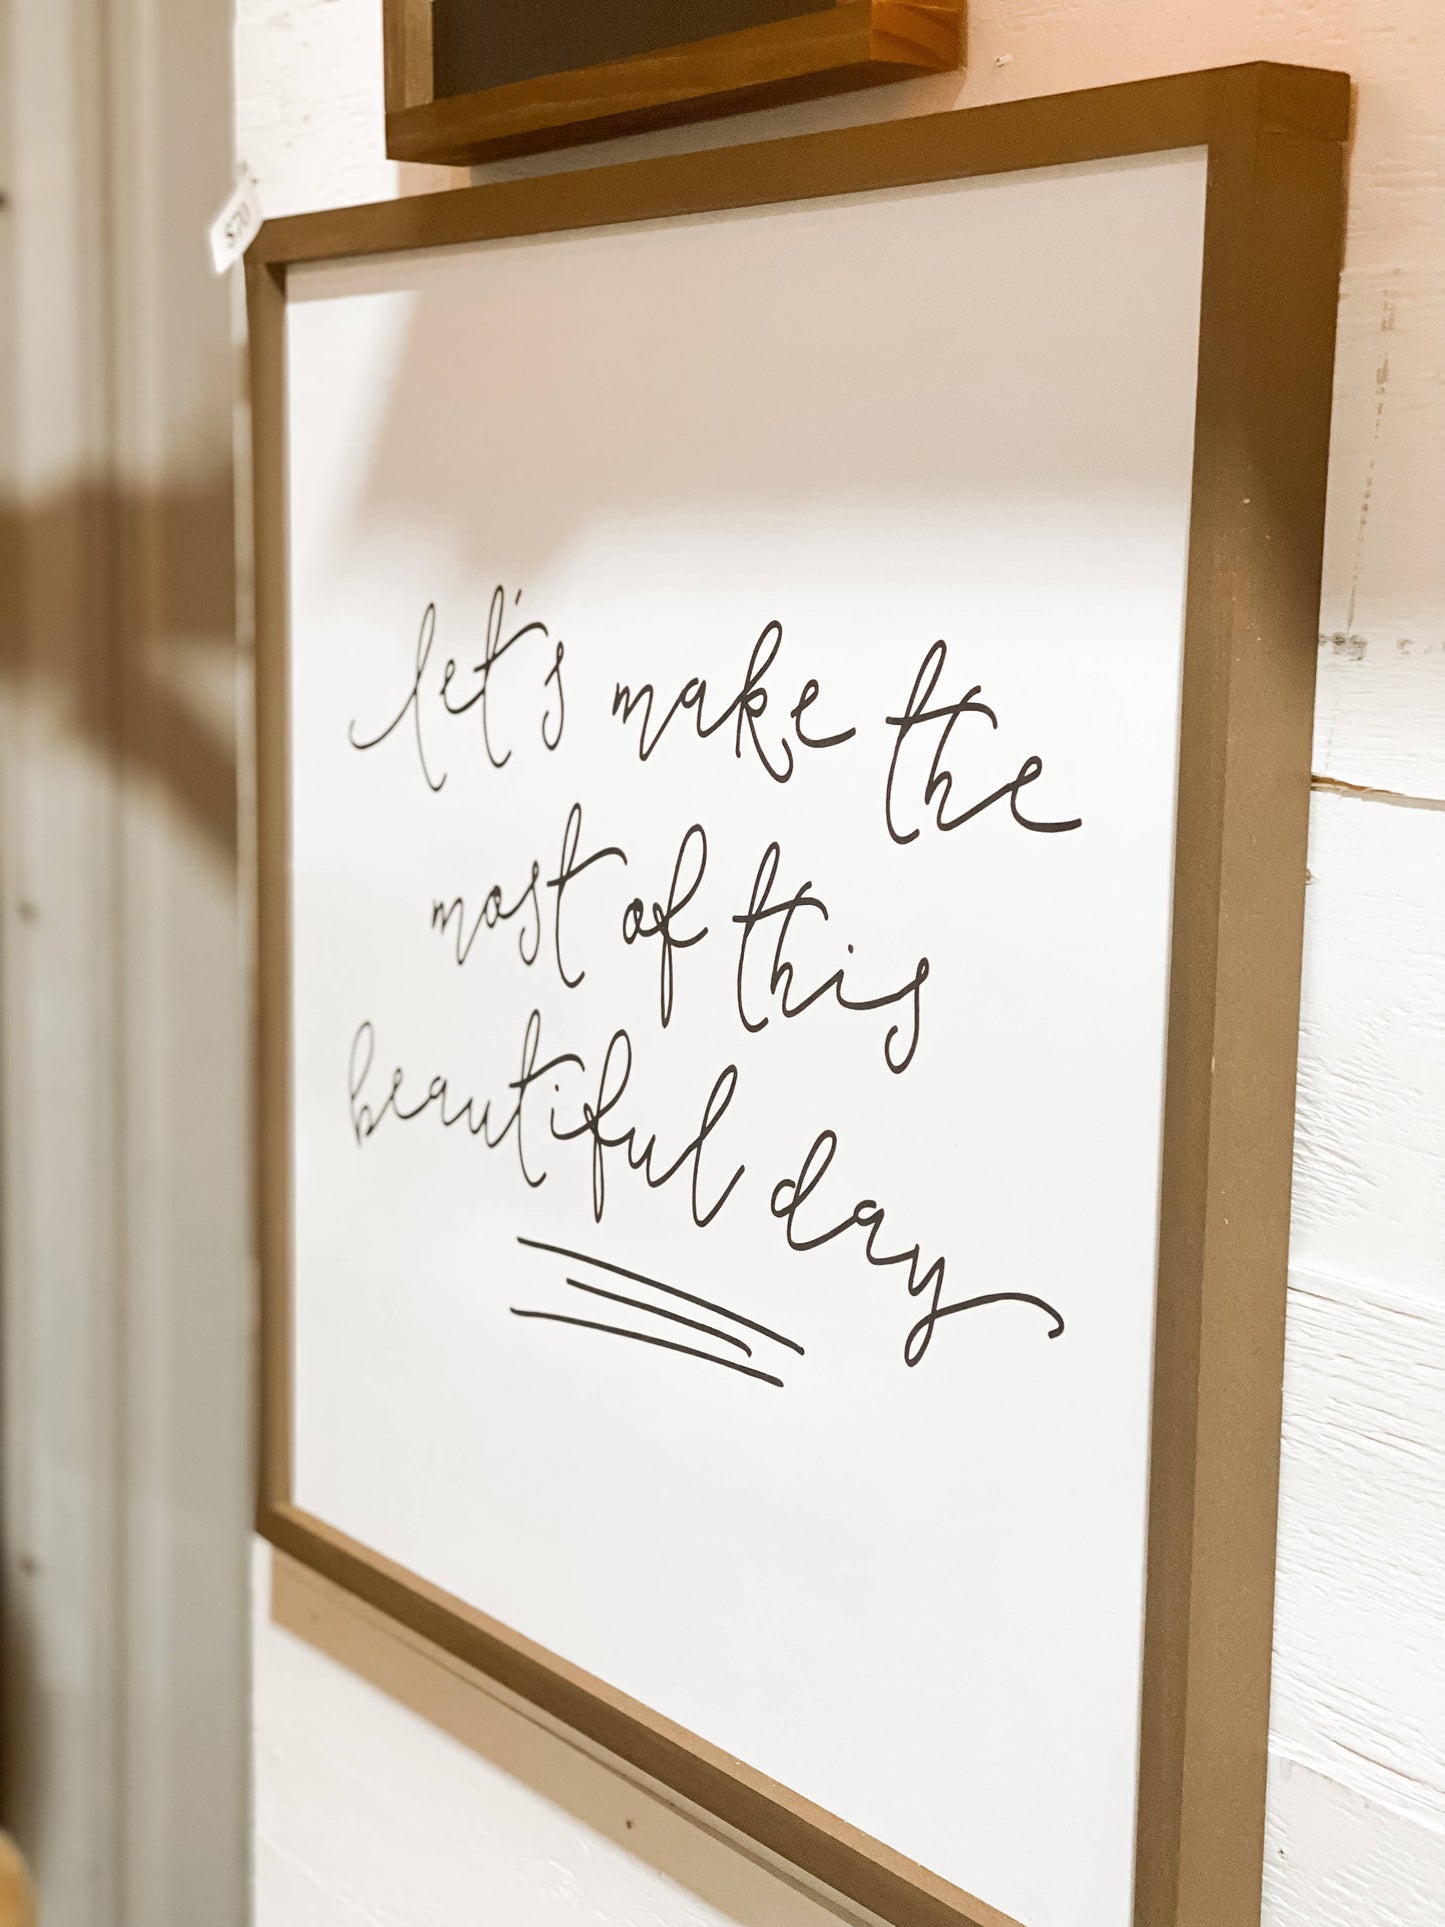 $70
let's make the
most of this
beautiful day